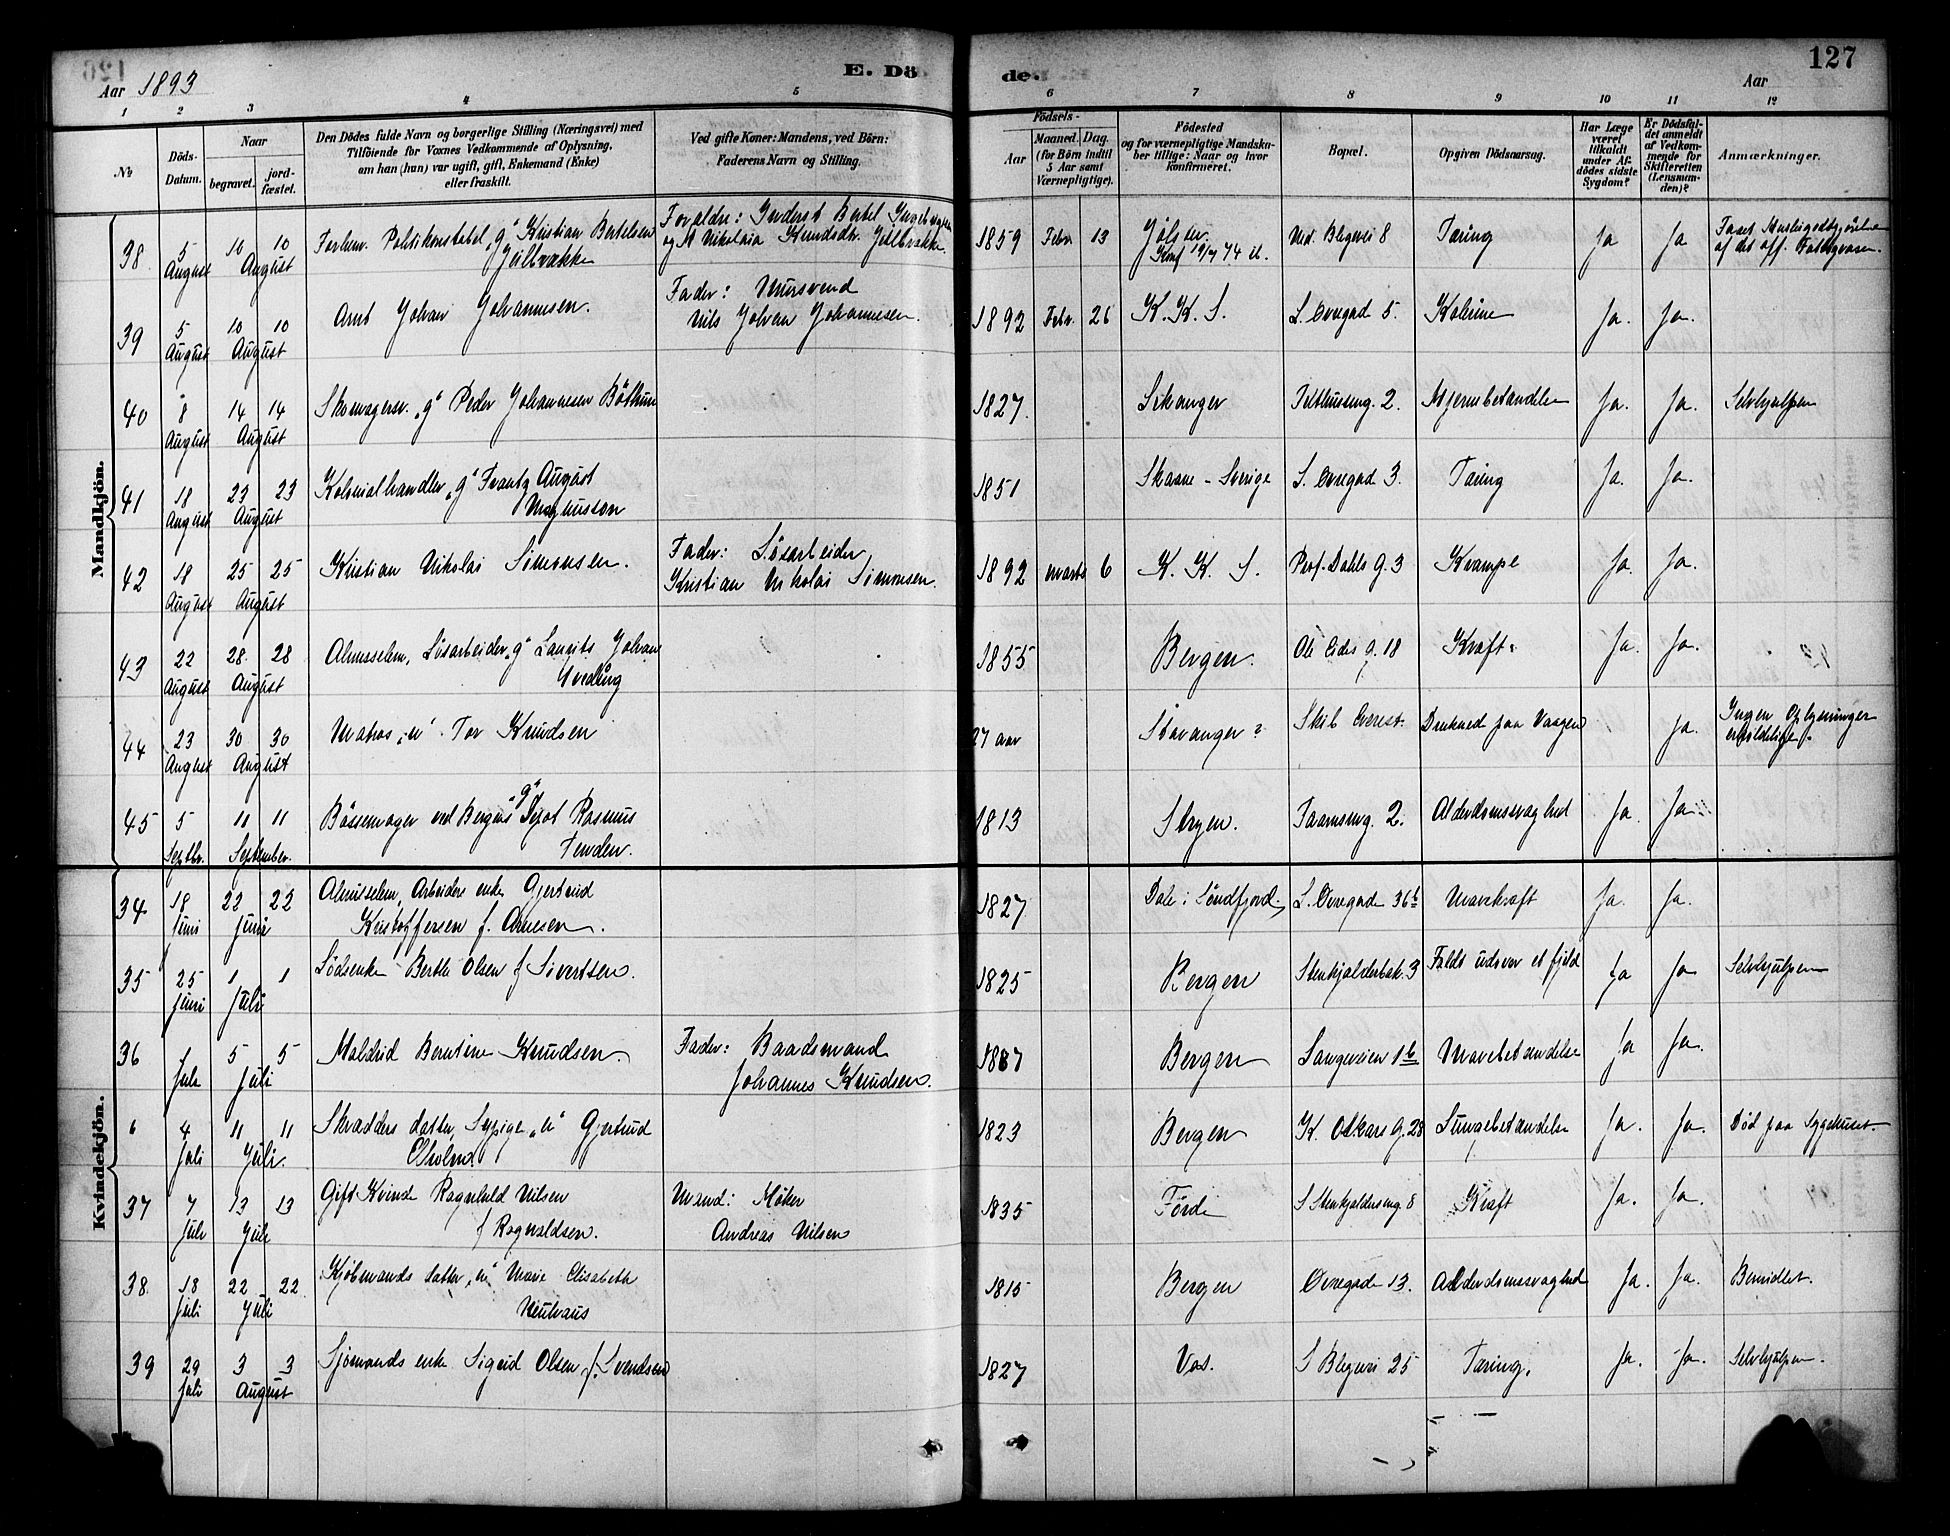 126
Aar 1893
E. Dö
de.
Aar
127
1 2 3 4 5 6 7 8 9 10 11 12
No
Döds-Datum.
Naar
begravet.
jord-fæstet.
Den Dödes fulde Navn og borgerlige Stilling (Næringsvei) med
Tilföiende for Voxnes Vedkommende af Oplysning,
om han (hun) var ugift, gift, Enkemand (Enke)
eller fraskilt.
Ved gifte Koner: Mandens, ved Börn:
Faderens Navn og Stilling.
Födsels-
Aar
Maaned. Dag.
(for Börn indtil
5 Aar samt
Værnepligtige).
Födested
og for værnepligtige Mandska-
ber tillige: Naar og hvor
konfirmeret.
Bopæl.
Opgiven Dödsaarsag.
Har Læge
været
tilkaldt
under Af-
dödes sidste
Sygdom?
Er Dödsfal-
det anmeldt
af Vedkom-
mende for
Skifteretten
(Lensman-
den)?
Anmærkninger.
Mandkjön.
38 5 August 10 10 August Forhen. Politikonstabel "g" Kristian Bertelsen
Forældre: Inderst Bertel
og Nikolaia Knudsdr.
1859 Febr 13 Jölster Konf 74 Ned. Blegevei 8 Tæring Ja Ja
39 5 August 10 10 August Arnt Johan Johannesen.
Fader: Mursvend
Nils Johan Johannesen.
1892 Febr. 26 K. K. S. L. Øvregad 5. Kolerine Ja. Ja.
40 8 August 14 14 August Skomagersv. "g" Peder Johannesen Böthun
1827. Sikanger 2. Hjernebetændelse Ja. Ja. Selvhjulpen
41 18 August 23 23 August Kolonialhandler "g" Frantz August
Magnuson
1851 Skaane - Sverige L. Øvregad 3. Tæring Ja. Ja.
42 18 August 25 25 August Kristian Nikolai Simonsen.
Fader: Løsarbeider
Kristian Nikolai Simonsen.
1892 marts 6 K. K. S. Prof. Dahls g. 3 Krampe Ja. Ja.
43 22 August 28 28 August Almisselem, Løsarbeider "g" Laurits Johan
1855 Bergen. Ole Eides g. 18 Kræft. Ja. Ja.
44 23 August 30 30 August Matros "u" Tor Knudsen
27 aar Stavanger? Skib Everest. Drukned paa Vaagen Ja. Ingen Oplysninger
erholdelige.
45 5 Septbr. 11 11 September. Bössemager ved Bergens "g" Depot Rasmus
Tenden.
1813 Stryn. 2. Alderdomssvaghed Ja. Ja.
Kvindekjön.
34 18 Juni 22 22 Juni Almisselem, Arbeiders enke Gjertrud
Kristoffersen f. Arnesen.
1827 Dale i Söndfjord. L. Øvregade 36b Mavekræft Ja. Ja.
35 25 Juni 1 1 Juli Enke Berthe Olsen f Sivertsen.
1825 Bergen Stenkjelderbak. 3 Falds udover et fjeld Ja Ja Selvhjulpen
36 Juli 5 5 Juli Maldrid Berntine Knudsen.
Fader: Baadsmand
Johannes Knudsen.
1887 Bergen Langeveien 1b Mavebetændelse Ja Ja.
6 4 Juli 11 11 Juli. Skrædders datter, Sypige "u" Gjertrud
1823 Bergen K. Oskars g. 28 Lungebetændelse Ja. Ja. Död paa Sygehuset.
37 7 Juli 13 13 Juli Gift Kvinde Ragnhild Nilsen
f Ragnvaldsen.
Mand: Möller
Andreas Nilsen
1835 Førde S Stenkjeldersmg. 8 Kræft Ja. Ja.
38. 18 Juli 22 22 Juli Kjöbmands datter "u" Marie Elisabeth
Neuhaus
1815 Bergen Øvregade 13. Alderdomssvaghed Ja. Ja. Bemidlet.
39 29 Juli 3 3 August Sjömands enke Sigrid Olsen f. Svendsen
1827 Vos. S Blegevei 25 Tæring. Ja. Ja. Selvhjulpen.